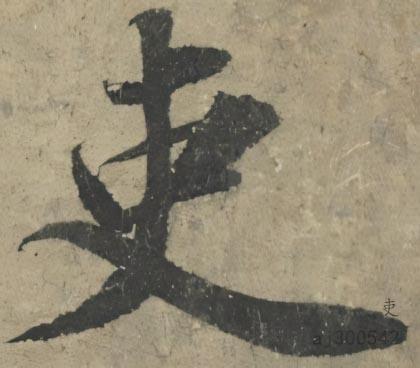 吏
吏
aj300542